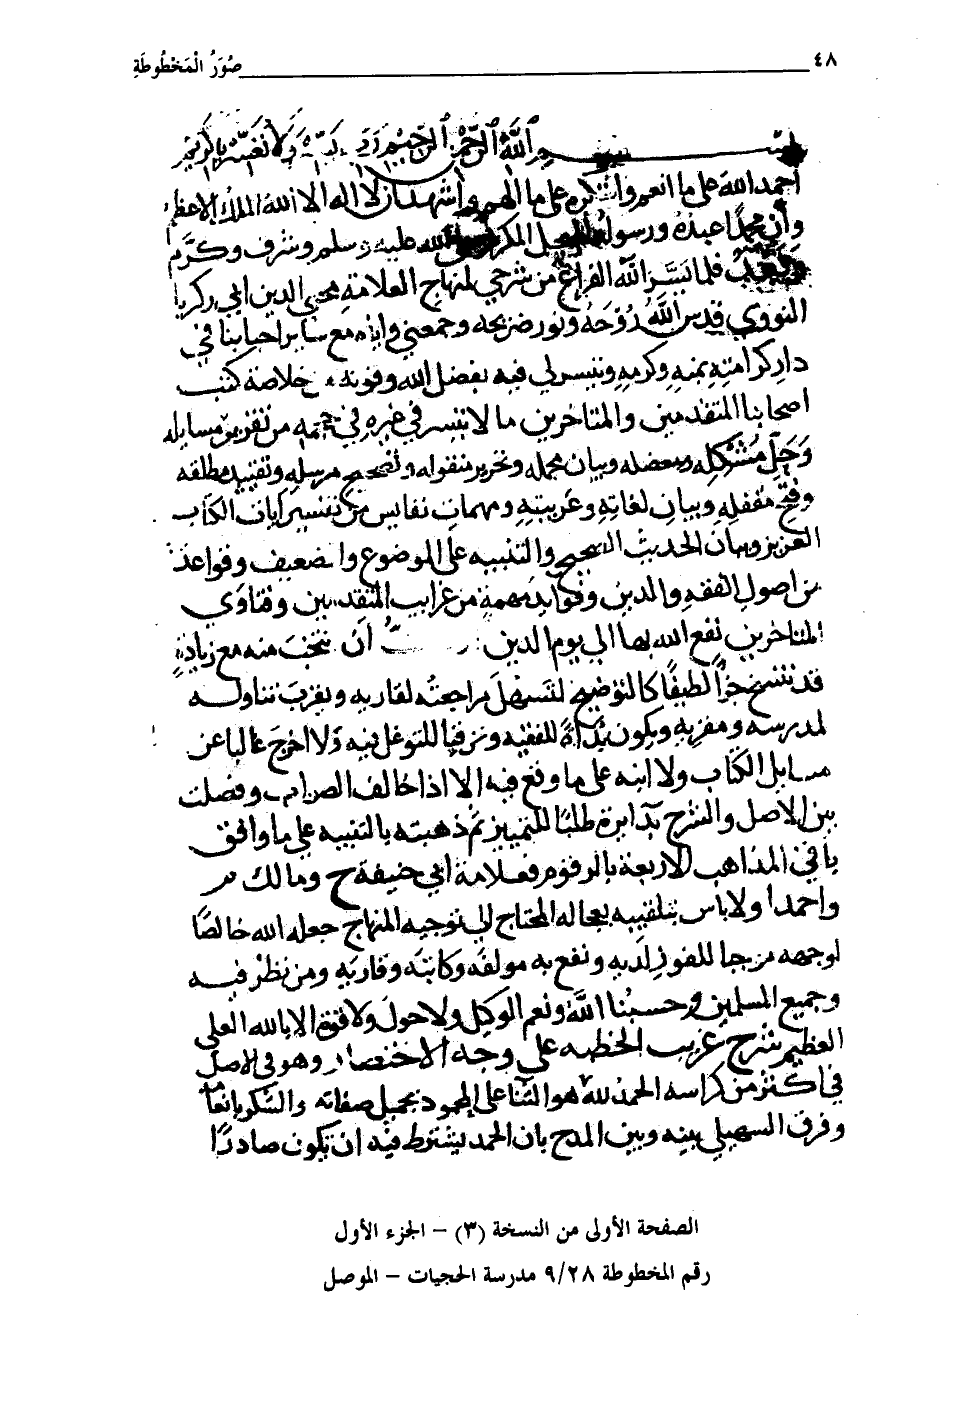 ٤٨
صُوَرُ الْمَخْطُوطَةِ
بسم الله الرَّحمن الرَّحيم رَبّ يَسّر وَلَا تُعَسّر يا كريم
احمد الله على ما انعم واشكره على ما الهم واشهد ان لا اله الا الله الملك الاعظم
وأن محمدًا عبده ورسوله المكرم الله عليه وسلم وشرف وكرّم
وبعد فلما يَسَّر الله الفراغ من شرحي لمنهاج العلامة محيي الدين ابي زكريا
النووي قدس الله رُوْحَهُ ونور ضريحه وجمعني واياه مع ساير احبابنا في
دار كرامته بمنه وكرمه وتيسر لي فيه بفضل الله وقوته خلاصة كتب
اصحابنا المتقدمين والمتاخرين ما لا تيسر في غيره في حجمه من تقرير مسايله
وَحَلِّ مُشْكِلِه ومعضله وبيان مجمله وتحرير منقوله وتصحيح مرسله وتقييد مطلقه
وفتح مقفله وبيان لغاته وعربيته ومهمات نفايس من تفسير ايات الكتاب
العزيز وبيان الحديث الصحيح والتنبيه على الموضوع والضعيف وقواعد
من اصول الفقه والدين وفوايد مهمة من غرايب المتقدمين وفتاوي
المتاخرين نفع الله بها الي يوم الدين ان ننتخب منه مع زيادة
قد تسنح جزًا لطيفًا كالتوضيح لتسهل مراجعته لقاريه ويقرب تناوله
لمدرسه ومقريه ويكون بُدأةً للفقيه وترقيا للتوغل فيه ولا اخرج غالبا عن
مسايل الكتاب ولا انبه على ما وقع فيه الا اذا خالف الصواب وفصلت
بين الاصل والشرح بدايرة طلبًا للتمييز ثم ذهبته بالتنبيه على ما وافق
باقي المذاهب الاربعة بالرقوم فعلامة ابي حنيفة ح ومالك م
واحمد ا ولا باس بتلقيبه بعجالة المحتاج الي توجيه المنهاج جعله الله خالصًا
لوجهه مزجا للفوز لديه ونفع به مولفه وكاتبه وقاريه ومن نظر فيه
وجميع المسلمين وحسبُنا اللهُ ونعم الوكيل ولا حول ولا قوة الا بالله العلي
العظيم شرح غريب الخطبه على وجه الاختصار وهو في الاصل
في اكثر من كراسه الحمد لله هو الثنا على المحمود بجميل صفاته والشكر بانعامه
وفرق السهيلي بينه وبين المدح بان الحمد يشترط فيه ان تكون صادرًا
الصفحة الأولى من النسخة (٣) – الجزء الأول
رقم المخطوطة ٩/٢٨ مدرسة الحجيات – الموصل